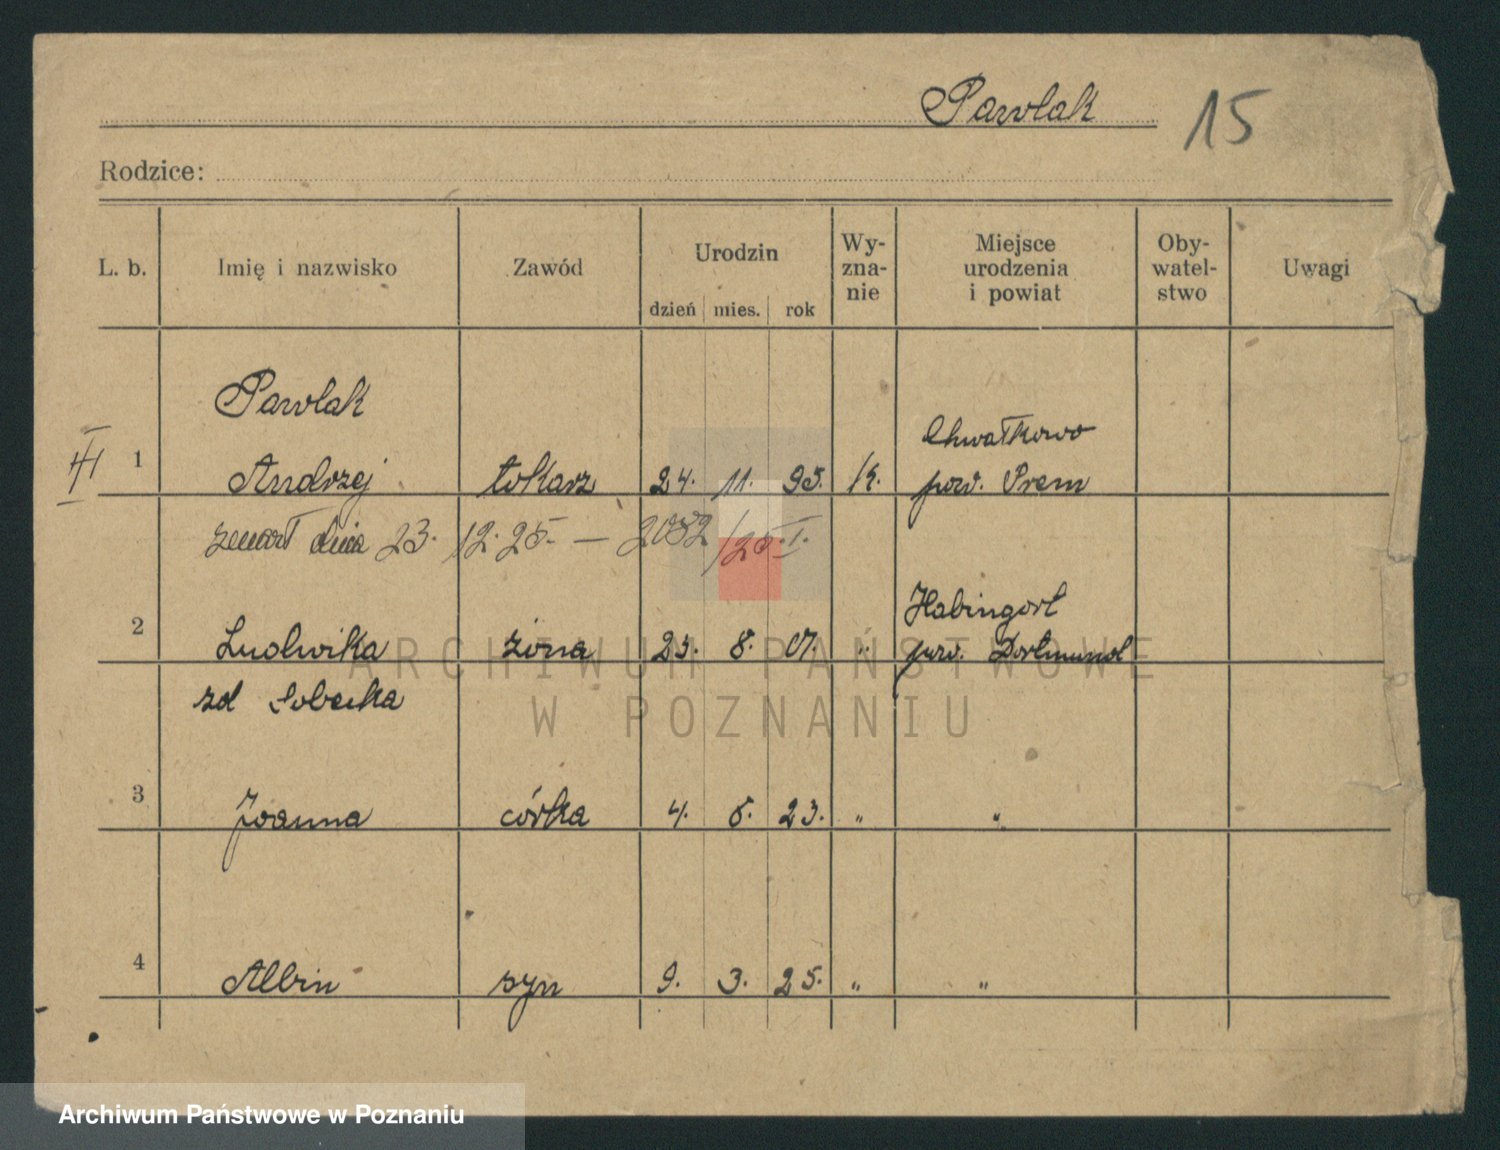 Pawlak 15
Rodzice:
L. b. Imię i nazwisko Zawód Urodzin dzień mies. rok Wy-zna-nie Miejsce urodzenia i powiat Oby-watel-stwo Uwagi
Pawlak
III 1 Andrzej tokarz 24. 11. 95. K. Chwałkowo pow. Śrem
zmarł dnia 23. 12. 25. — 2082/25. I.
2 Ludwika żona 25. 8. 01. " Habingort pow. Dortmund
zd Sobecka
3 Joanna córka 4. 5. 23. " "
4 Albin syn 9. 3. 25. " "
ARCHIWUM PAŃSTWOWE
W POZNANIU
Archiwum Państwowe w Poznaniu